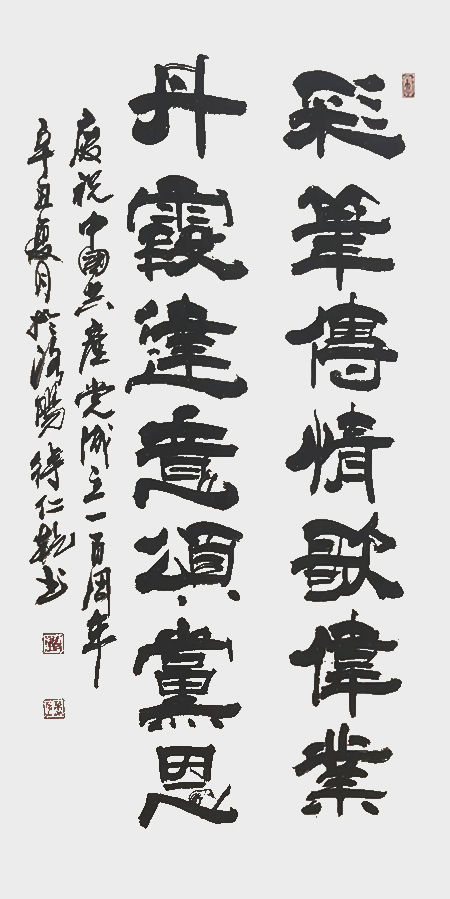 彩筆傳情歌偉業
丹霞達意頌黨恩
慶祝中國共產党成立一百周年
辛丑夏月於洛陽仁书